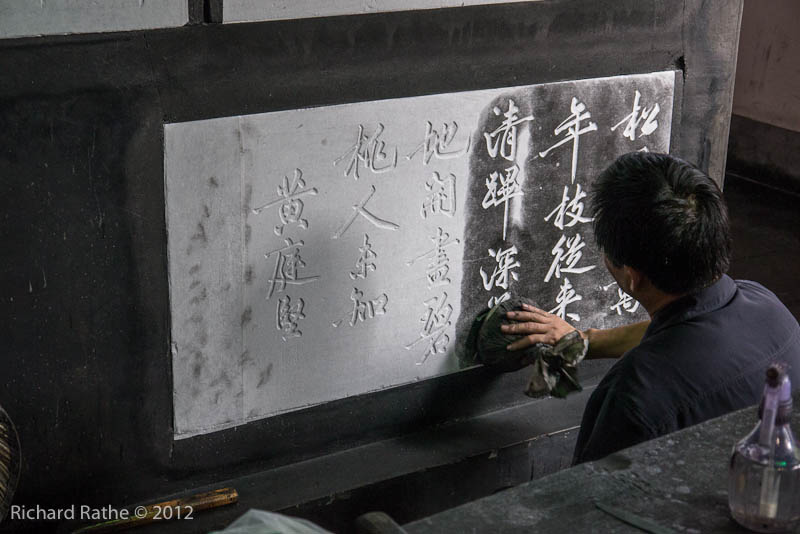 松
年枝從来
清蹕深
地開盡碧
桃人未知
黄庭堅
Richard Rathe © 2012